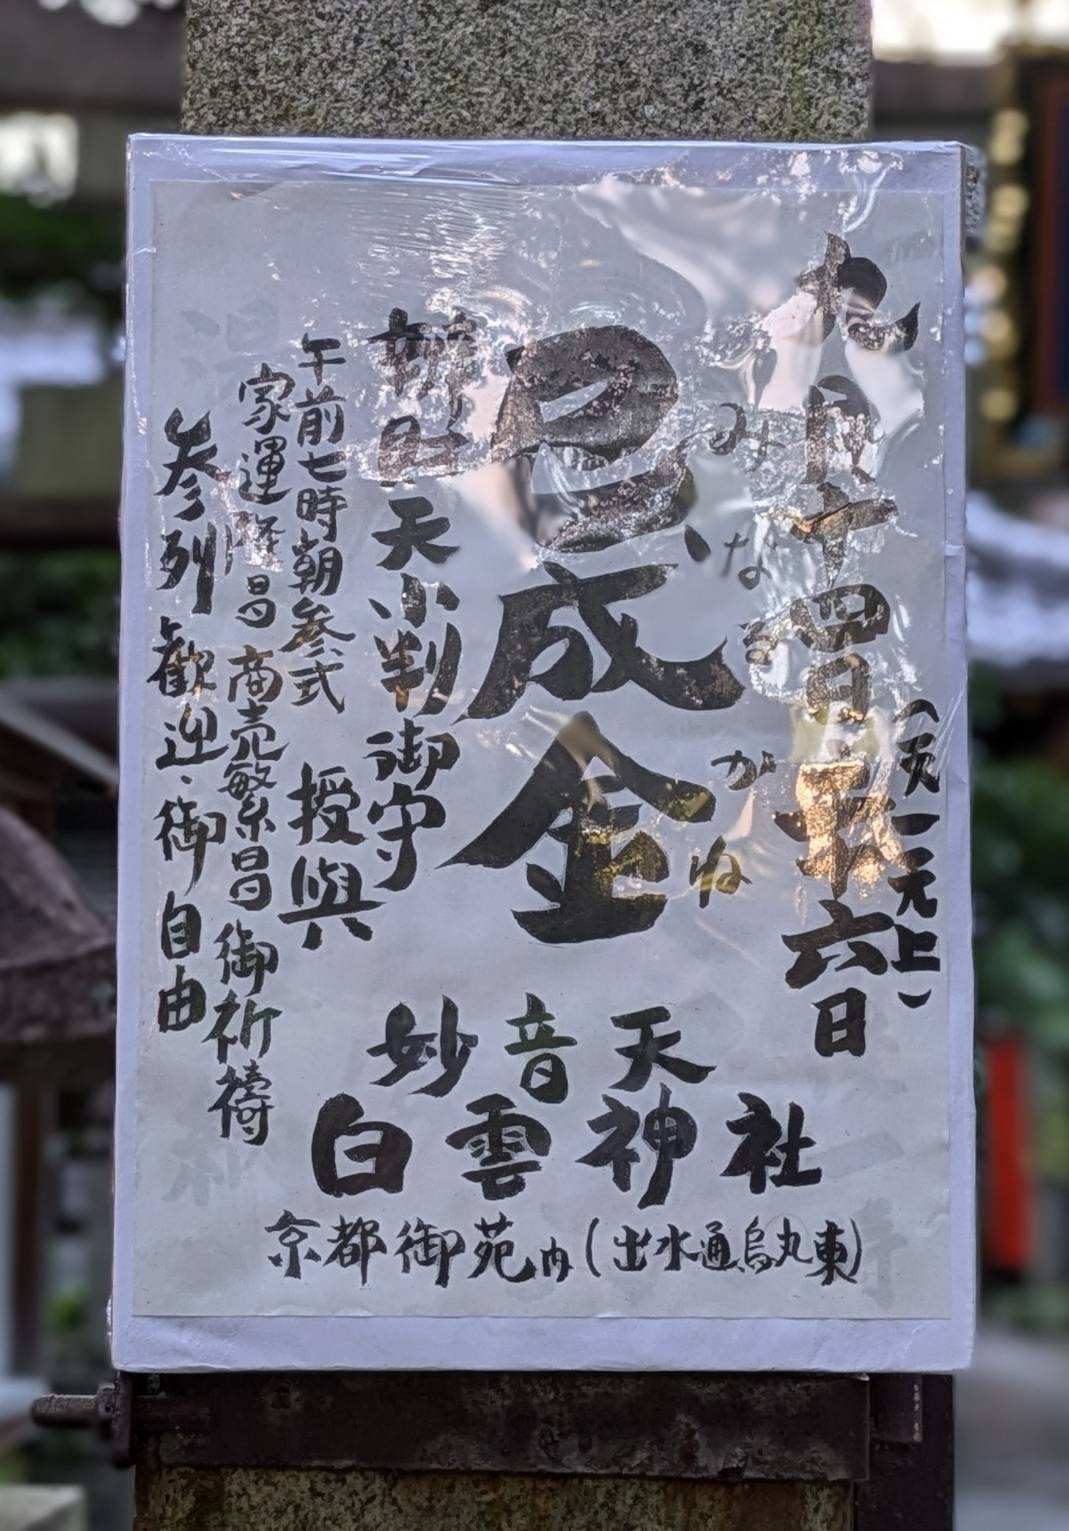 九月十四日・二十六日
みなるかね
巳成金
辨財天小判御守
午前七時朝参式 授與
家運隆昌 商売繁昌 御祈禱
参列歡迎、御自由
妙音天
白雲神社
京都御苑内(出水通烏丸東)